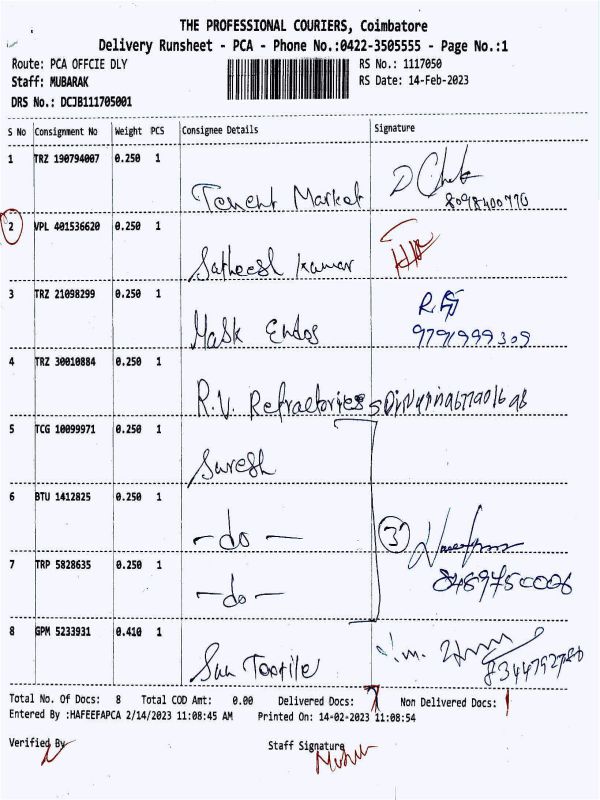 THE PROFESSIONAL COURIERS, Coimbatore
Delivery Runsheet - PCA - Phone No.:0422-3505555 - Page No.:1
Route: PCA OFFCIE DLY
RS No.: 1117050
Staff: MUBARAK
RS Date: 14-Feb-2023
DRS No.: DCJB111705001
S No Consignment No Weight PCS Consignee Details Signature
1 TRZ 190794007 0.250 1
Tenent Market
8098400770
2 VPL 401536620 0.250 1
Satheesh kumar
3 TRZ 21098299 0.250 1
Mask Endos
9791999309
4 TRZ 30010884 0.250 1
R.V. Refractories
5 TCG 10099971 0.250 1
Suresh
6 BTU 1412825 0.250 1
- do -
3
7 TRP 5828635 0.250 1
- do -
8 GPM 5233931 0.410 1
Sun Textile
Total No. Of Docs: 8 Total COD Amt: 0.00 Delivered Docs: 7 Non Delivered Docs: 1
Entered By :HAFEEFAPCA 2/14/2023 11:08:45 AM Printed On: 14-02-2023 11:08:54
Verified By
Staff Signature